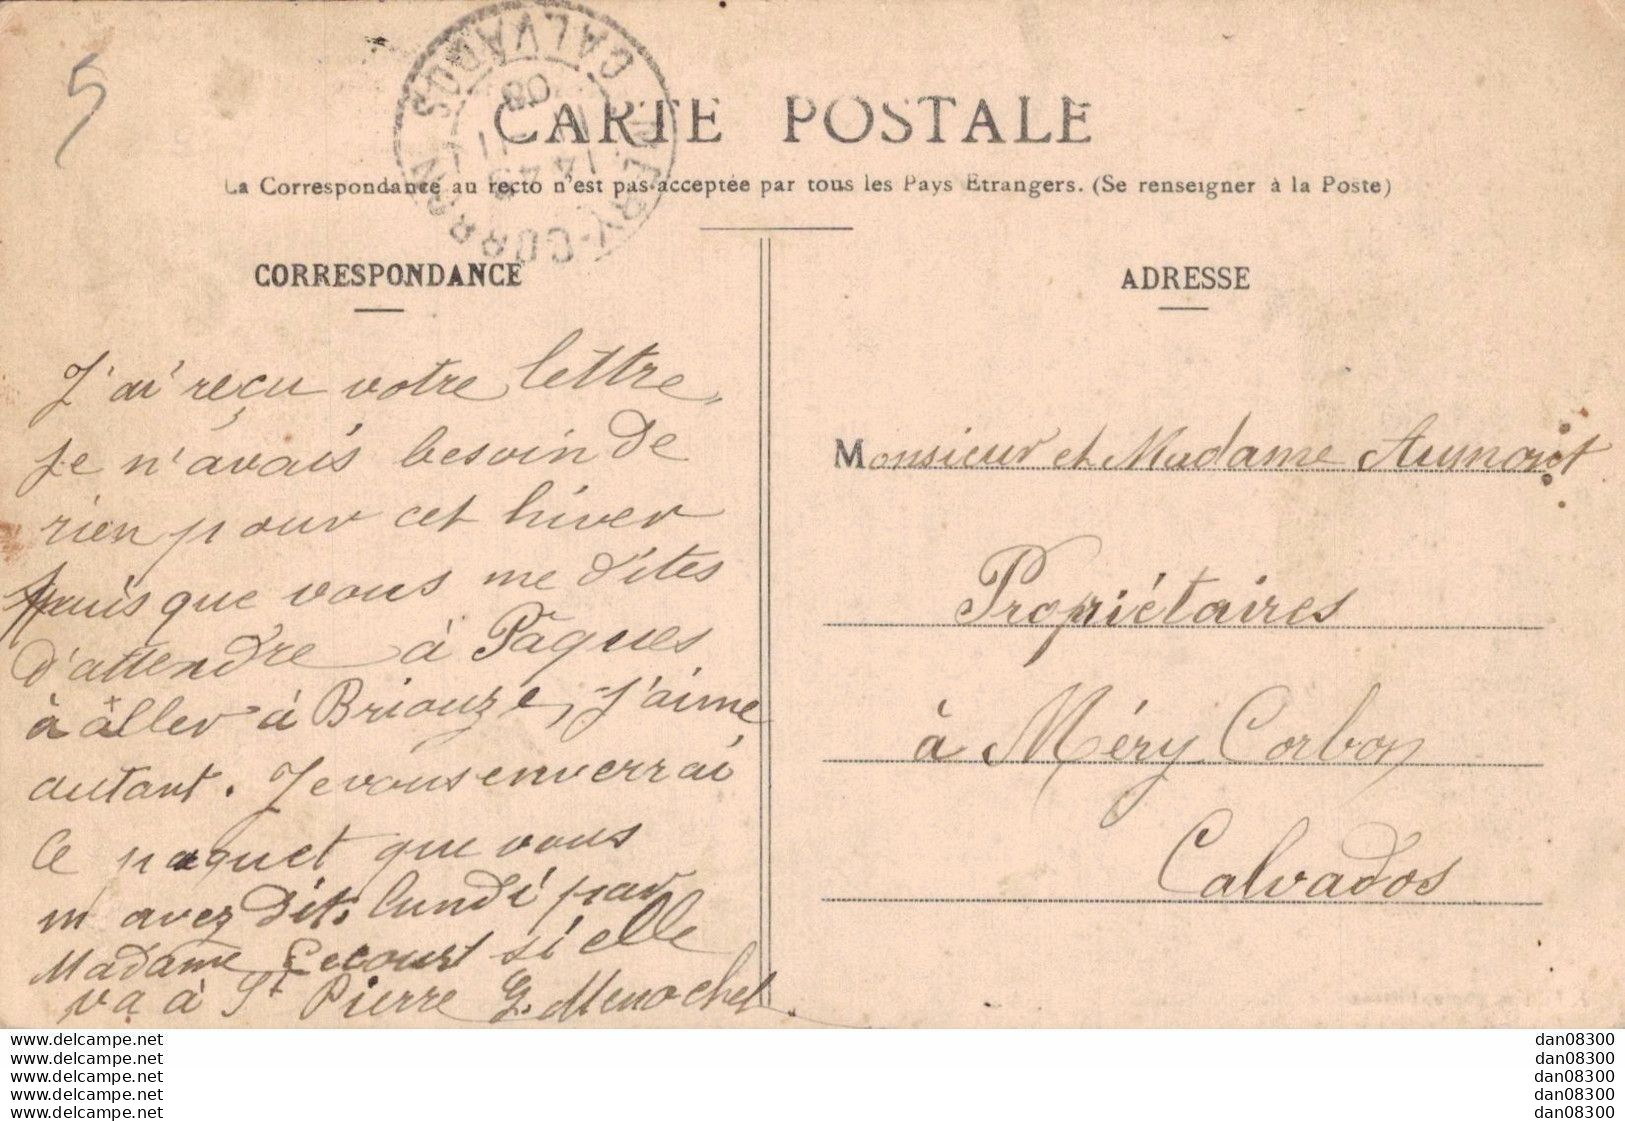 5
CALVADOS
08
CARTE POSTALE
La Correspondance au recto n'est pas acceptée par tous les Pays Etrangers. (Se renseigner à la Poste)
CORRESPONDANCE
J'ai reçu votre lettre,
je n'avais besoin de
rien pour cet hiver
puis que vous me dites
d'attendre à Pâques
à aller à Briouze, J'aime
autant. Je vous enverrai
le paquet que vous
m avez dit, lundi par
Madame Lecourt si elle
va à St Pierre G. Menochet.
ADRESSE
Monsieur et Madame Aumont
Propriétaires
à Méry Corbon
Calvados
www.delcampe.net
www.delcampe.net
www.delcampe.net
www.delcampe.net
www.delcampe.net
dan08300
dan08300
dan08300
dan08300
dan08300